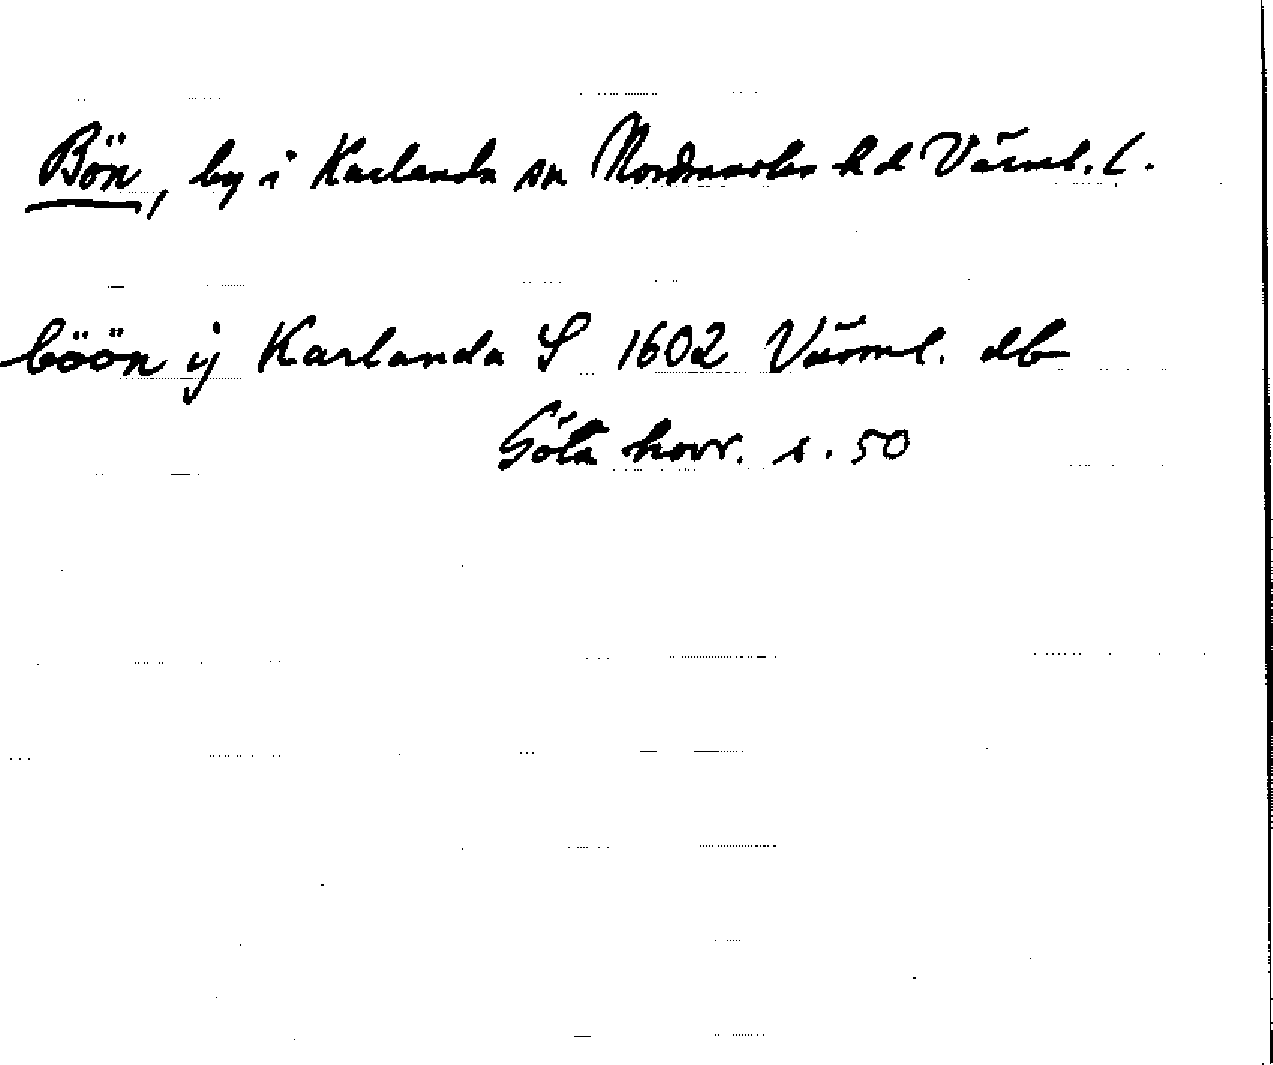 Bön, by i Karlanda sn Nordmarks hd Värml. l.
böön ij Karlanda S 1602 Värml. db
Göta hovr. s. 50